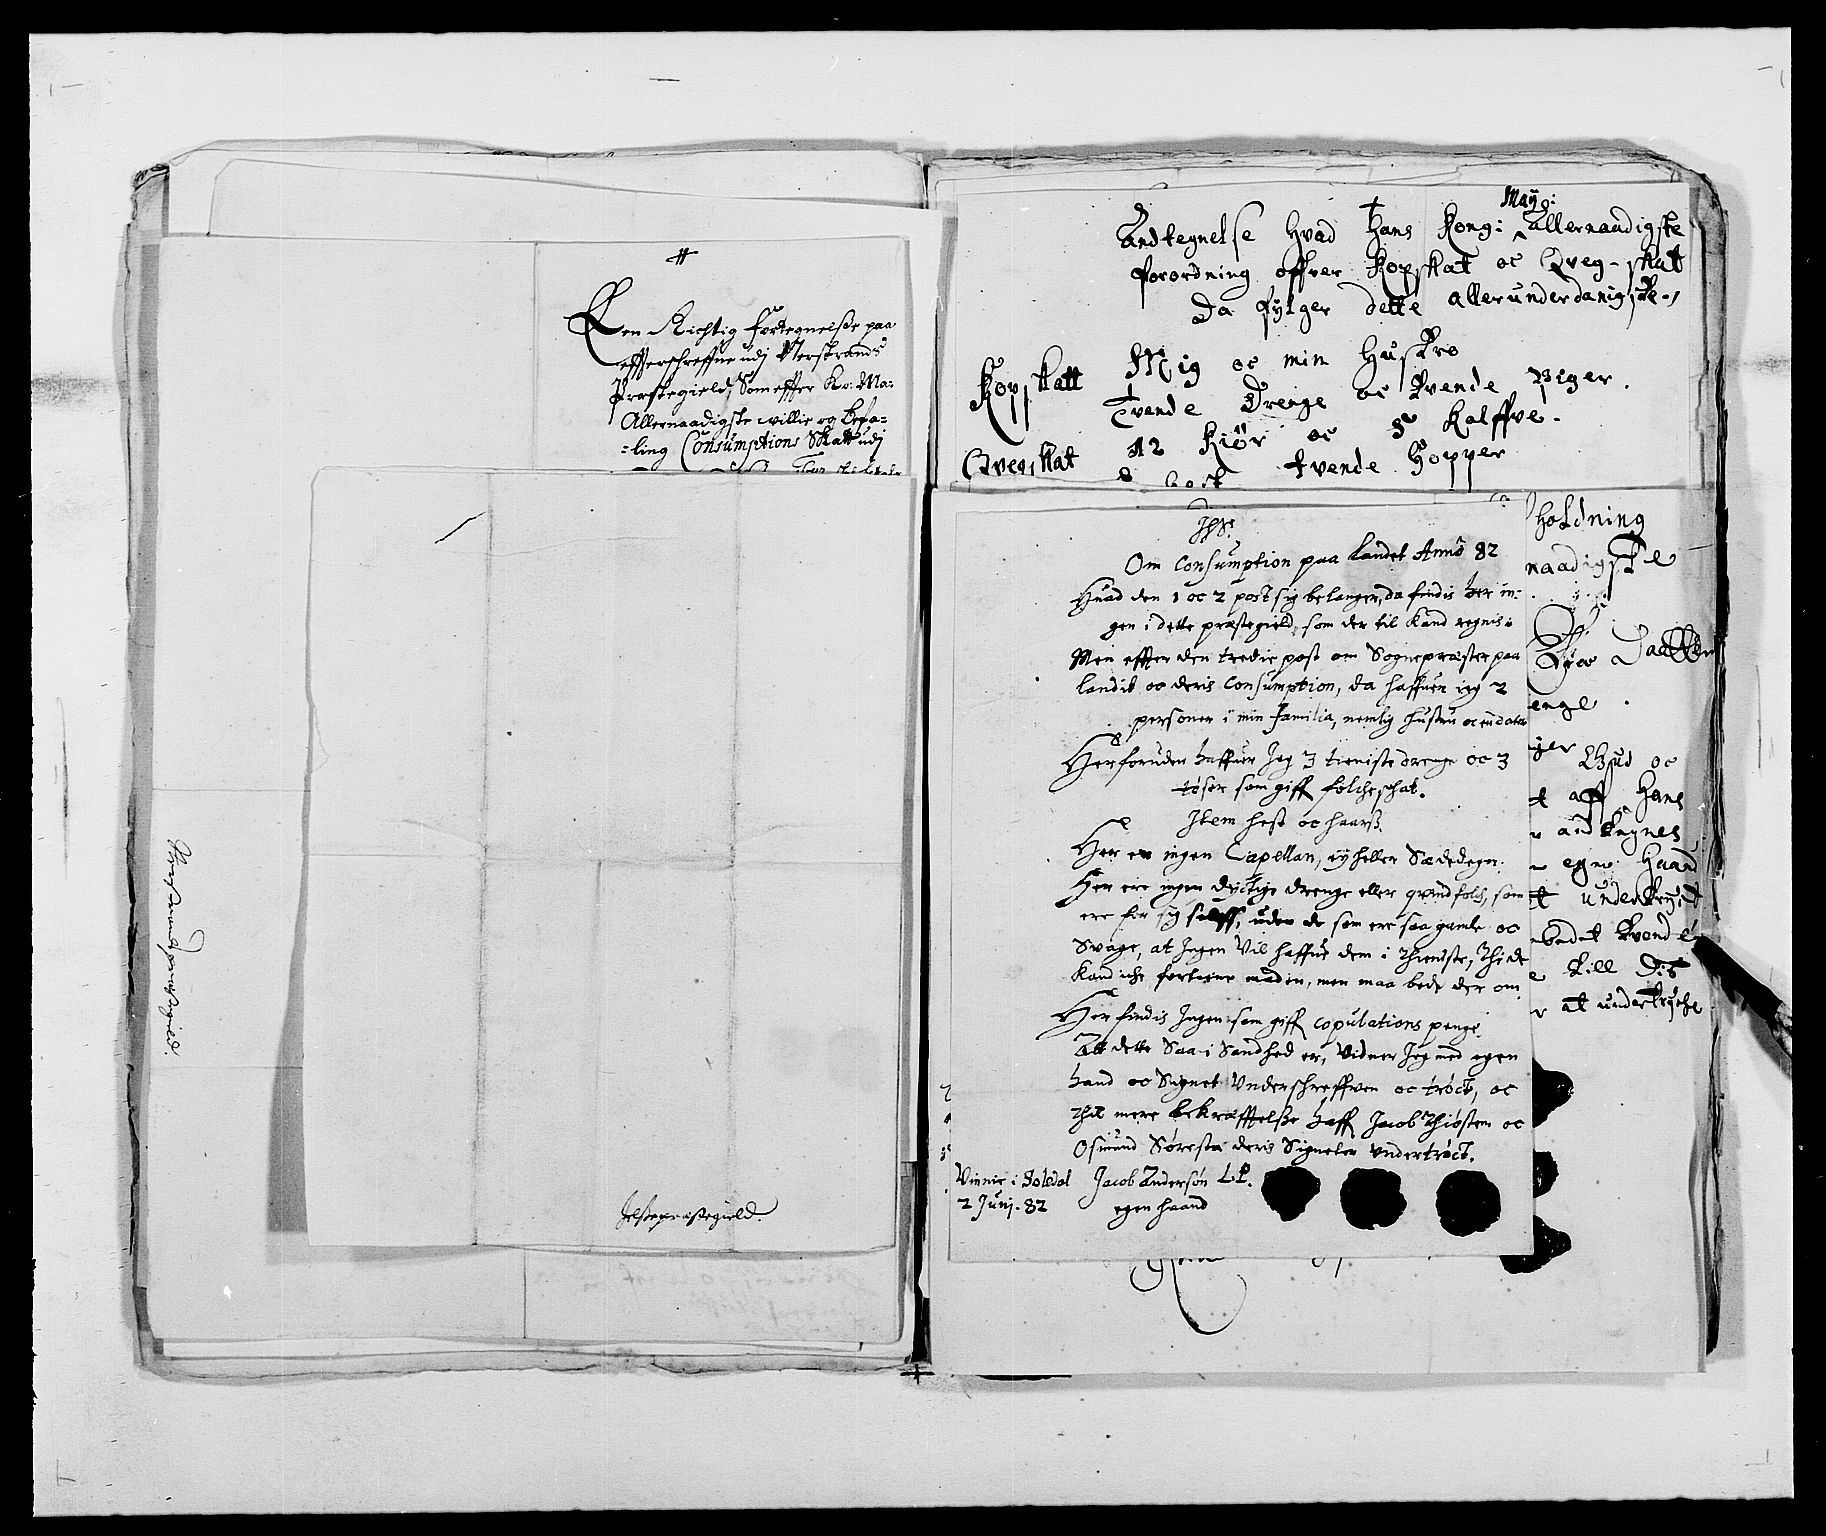 #
Een Richtig fortegnelsße paa
effterschreffne udj Nerstrands
Præstegield, Som effter Ko: Ma:
Allernaadigste willie og befa-
=ling Consumptions Skatt udj
Nerstrands præstegield.
Jelsße præstegield.
Maÿ:
Andtegnelse hvad Hans Kong: allernaadigste
forordning offver Kopskat oc Qveg-skat
Da fylger dette allerunderdanigste
Kopskatt
Mig oc min Hustro
Tvende Drenge oc tvende Piger.
Qvegskat
12 Kiör oc 8 Kalffve.
tvende Hopper
JHS.
Om Consumption paa Landet Anno 82
Huad den 1 oc 2 post sig belanger, da findis her in-
gen i dette præstegield, som der til kand regnis.
Men effter den tredie post om Sognepræster paa
landit oc deris Consumption, da haffuer ieg 2
personer i min familia, nemlig hustru oc en datter
Herforuden haffuer Jeg 3 tieniste drenge oc 3
tøser som giff folcheschat.
Item hest oc haarß.
Her er ingen Capellan, ey heller Sædedegn.
Her ere ingen dyctige drenge eller qvindfolch, som
ere for sig selff, uden de som ere saa gamle oc
Svage, at Ingen Vil haffue dem i thieniste, Thi de
Kand iche fortiene maden, men maa bede der om
Her findis Ingen som giff copulations penge.
Att dette Saa i Sandhed er, Vidner Jeg med egen
hand oc Signet Underschreffven oc tröct, oc
Thil mere bekræfftelße haff Jacob Thiøsten oc
Osmund Søresta deris Signeter undertröct.
Vinnie i Soledal
2 Junj. 82
Jacob Andersøn L.P.
egen haand
holdning
naadigste
enge
Bud oc
aff Hans
andtegnes
egne Haand
undertrÿct
tvende
till
at undertrÿche